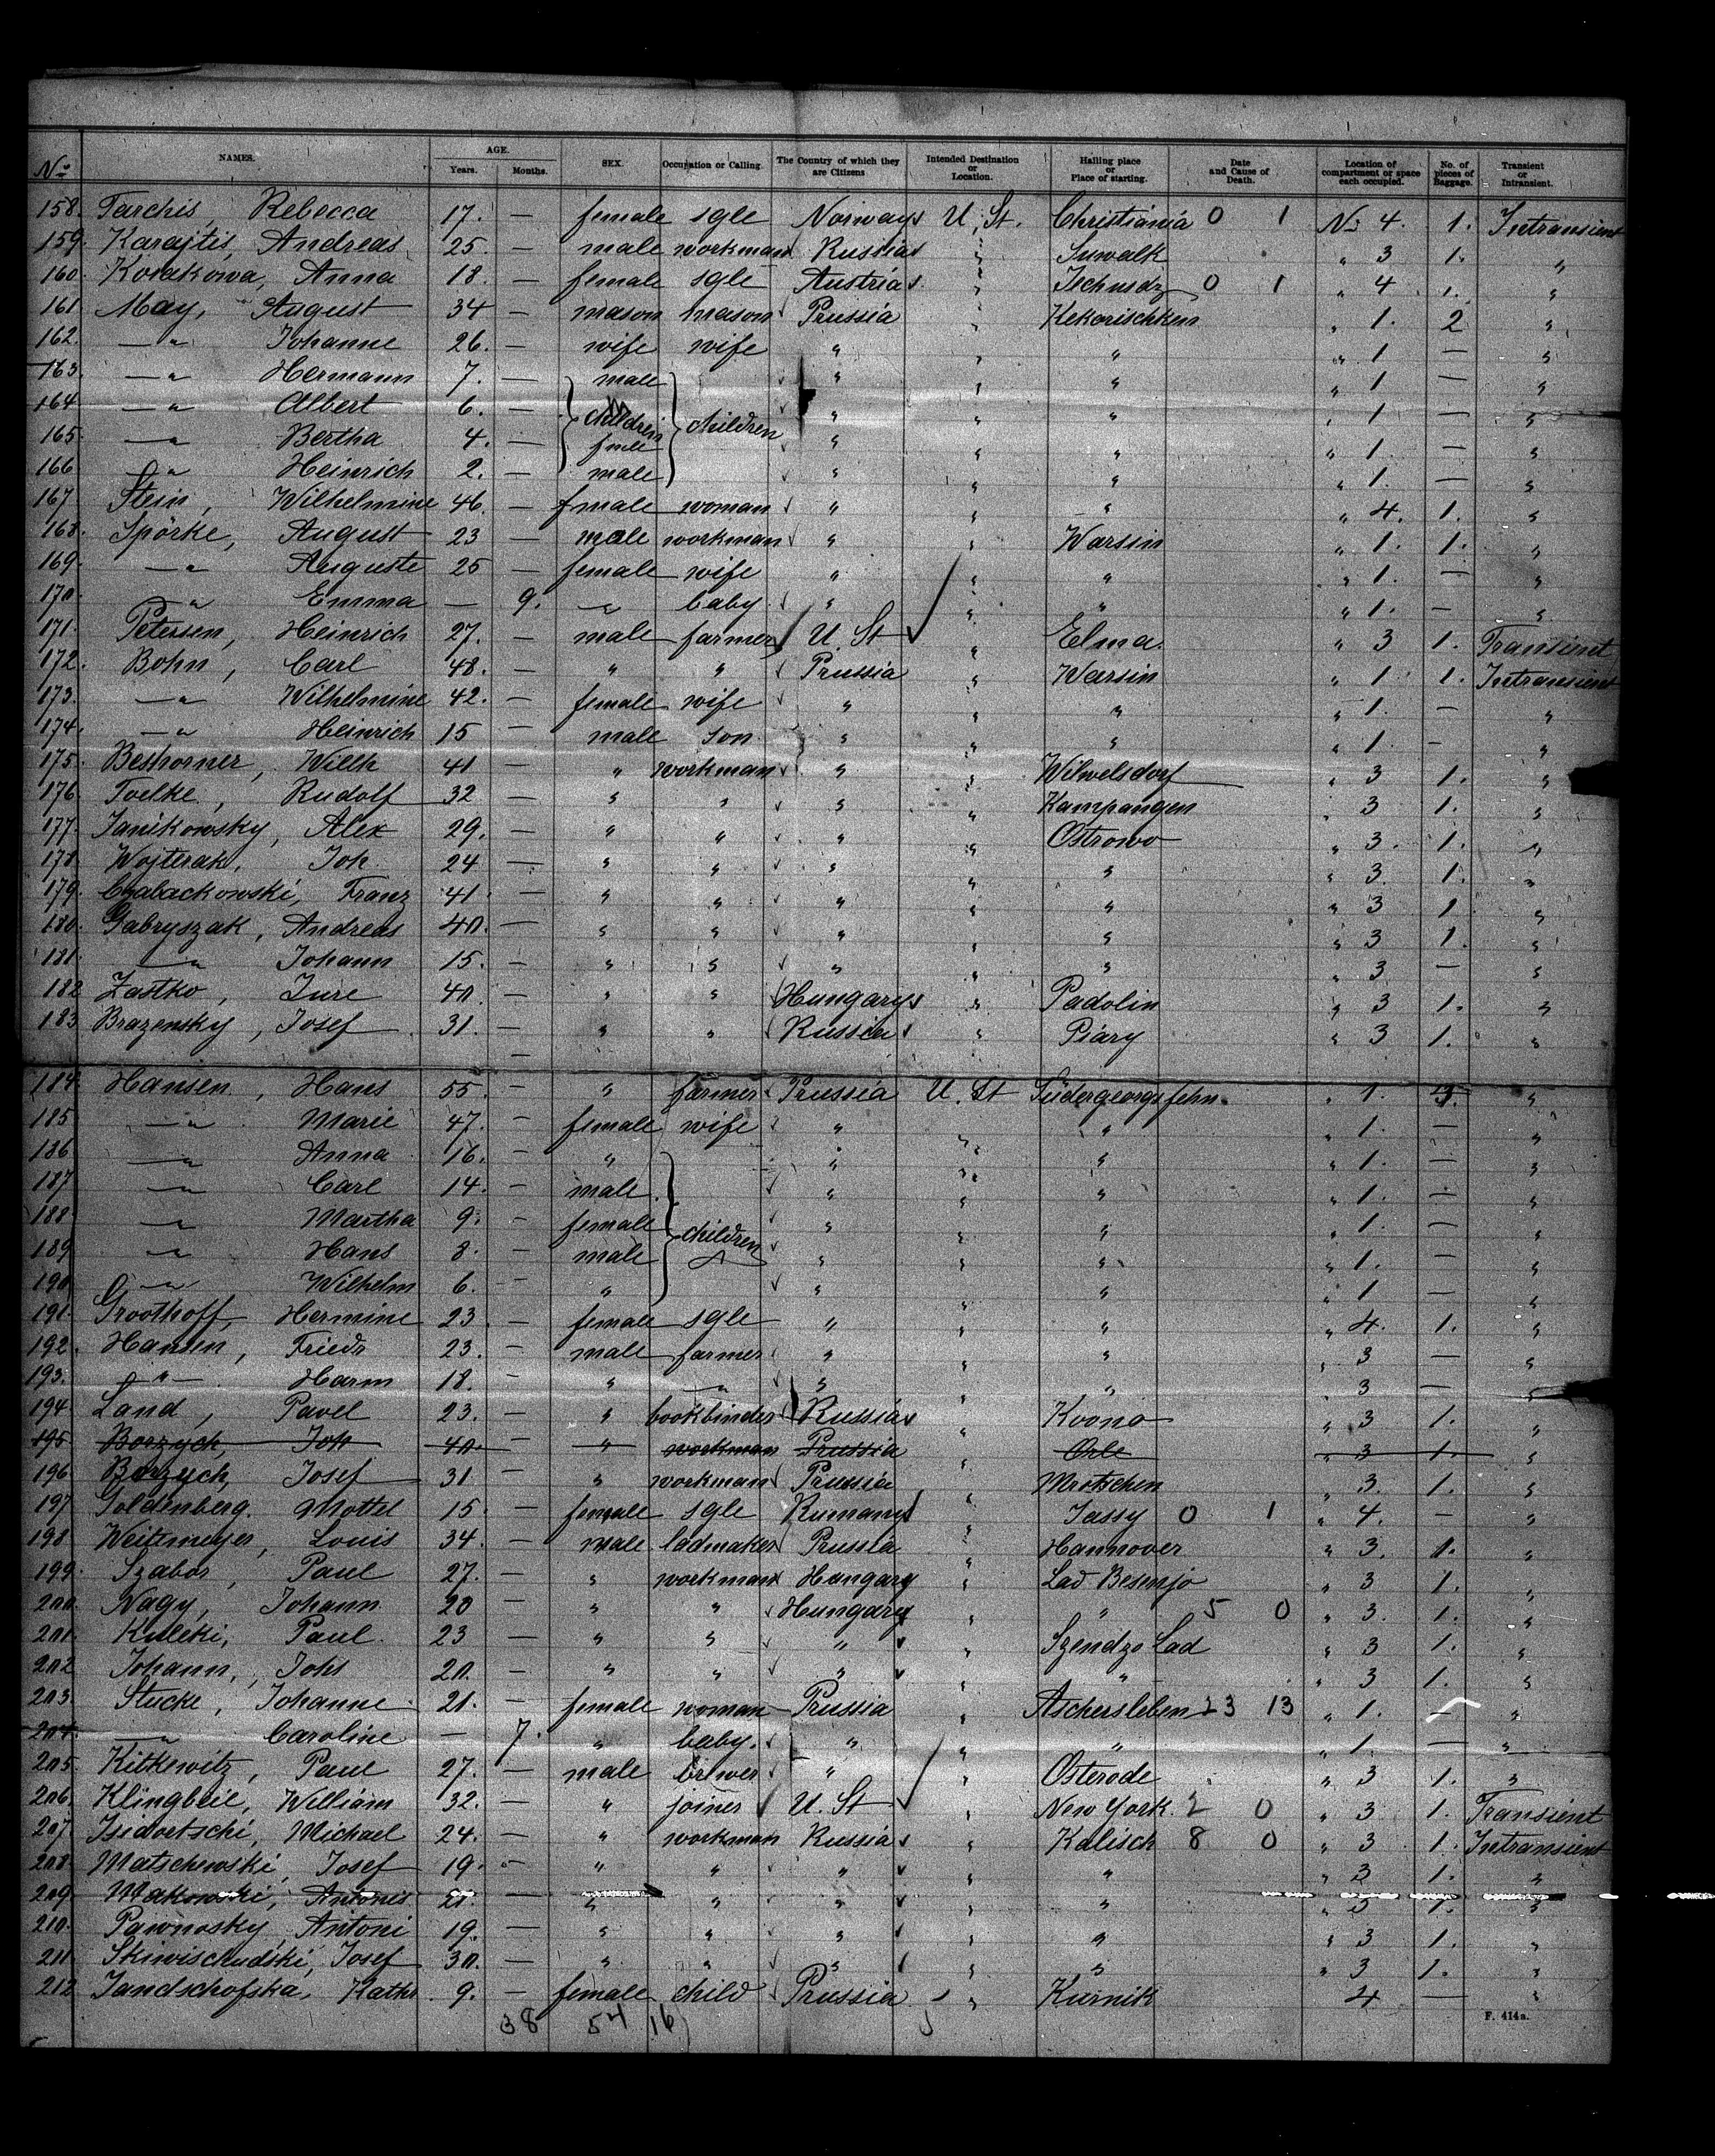 No NAMES. AGE. Years. Months. SEX. Occupation or Calling. The Country of which they are Citizens Intended Destination or Location. Hailing place or Place of starting. Date and Cause of Death. Location of compartment or space each occupied. No. of pieces of Baggage. Transient or Intransient.
158. Tarchis, Rebecca 17. — female sgle Norway U. St. Christiania 0 1 No 4. 1. Intransient
159. Karajtis, Andreas 25. — male workman Russia " Suwalk " 3 1. "
160. Kovakowa, Anna 18. — female sgle Austria " 0 1 " 4 1. "
161 May, August 34 — mason mason Prussia " Kekorischken " 1. 2 "
162. —"— Johanne 26. — wife wife " " " " 1 — "
163. —"— Hermann 7. — male " " " " 1 — "
164 —"— Albert 6. — children children " " " " 1 — "
165. —"— Bertha 4. — fmle " " " " 1. — "
166 —"— Heinrich 2. — male " " " " 1. — "
167 Stein, Wilhelmine 46. — female woman " " " " 4. 1. "
168. Spörke, August 23 — male workman " " Warsin " 1. 1. "
169. —"— Auguste 25 — female wife " " " " 1. — "
170. —"— Emma — 9. " baby " " " " 1. — "
171. Petersen, Heinrich 27. — male farmer U. St " Elma. " 3 1. Transient
172. Bohn, Carl 48. — " " Prussia " Warsin " 1 1. Intransient
173. —"— Wilhelmine 42. — female wife " " " " 1. — "
174. —"— Heinrich 15 — male son " " " " 1. — "
175. Beshorner, Willh 41 — " workman " " Wilwelsdorf " 3 1. "
176. Toelke, Rudolf 32 — " " " " Kampangen " 3 1. "
177. Janikowsky, Alex 29. — " " " " Ostrowo " 3. 1. "
178. Wojterak, Joh 24 — " " " " " " 3. 1. "
179. Czabackowski, Franz 41. — " " " " " " 3 1 "
180. Gabryszak, Andreas 40. — " " " " " " 3 1. "
181. —"— Johann 15. — " " " " " " 3 — "
182 Zastko, Jure 40. — " " Hungary " Padolin " 3 1. "
183 Brazensky, Josef 31. — " " Russia " Piary " 3 1. "
184. Hansen, Hans 55. — " farmer Prussia U. St Südergeorgsfehn " 1. 3. "
185 —"— Marie 47. — female wife " " " " 1. — "
186 —"— Anna 16. — " " " " " 1. — "
187 —"— Carl 14. — male " " " " 1. — "
188. —"— Martha 9. — female children " " " " 1. — "
189 —"— Hans 8. — male " " " " 1. — "
190. —"— Wilhelm 6. — " " " " " 1 — "
191. Groothoff, Hermine 23. — female sgle " " " " 4. 1. "
192. Hansen, Friedr 23. — male farmer " " " " 3 — "
193. —"— Harm 18. — " " " " " 3 — "
194 Land, Pavel 23. — " bookbinder Russia " Kvono " 3 1. "
195. Borzych, Joh 40. — " workman Prussia " Orle 3 1. "
196. Borzych, Josef 31 — " workman Prussia Mrotschen " 3. 1. "
197. Goldenberg. Mottel 15. — female sgle Rumany " Jassy 0 1 " 4. — "
198. Weitemeyer, Louis 34. — male ladmaker Prussia " Hannover " 3. 1. "
199. Szabos, Paul 27. — " workman Hungary " Lad Besenjo " 3 1. "
200. Nagy, Johann 20 — " " Hungary " " 5 0 " 3. 1. "
201. Kuleki, Paul. 23 — " " " " Szendzo Lad " 3 1. "
202 Johann, Johs 20. — " " " " " " 3 1. "
203. Stucke, Johanne 21. — female woman Prussia " Aschersleben 23 13 " 1. — "
204. —"— Caroline — 7. " baby. " " " " 1. — "
205. Kitkewitz, Paul 27. — male briwer " " Osterode " 3 1. "
206. Klingbeie, William 32. — " joiner U. St " New York. 2 0 " 3 1. Transient
207. Isidoetschi, Michael 24. — " workman Russia " Kalisch 8 0 " 3 1. Intransient
208. Matschewski, Josef 19. — " " " " " " 3 1. "
209. Makowski, Antonis 21. — " " " " " " 3 1. "
210. Pawnosky, Antoni 19. — " " " " " " 3 1. "
211 Skiwischudski, Josef 30. — " " " " " " 3 1. "
212 Jandschofska, Kathr. 9. — female child Prussia " Kurnik 4 — "
38 54 16
F. 414a.